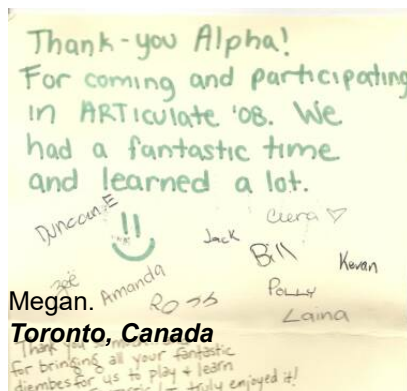 Thank-you Alpha!
For coming and participating
in ARTiculate '08. We
had a fantastic time
and learned a lot.
Duncan E
Ciera ♡
Jack
Bill
Kevan
Zoë
Amanda
Ross
Polly
Laina
Megan.
Toronto, Canada
Thank you
for bringing all your fantastic
djembes for us to play + learn
truly enjoyed it!